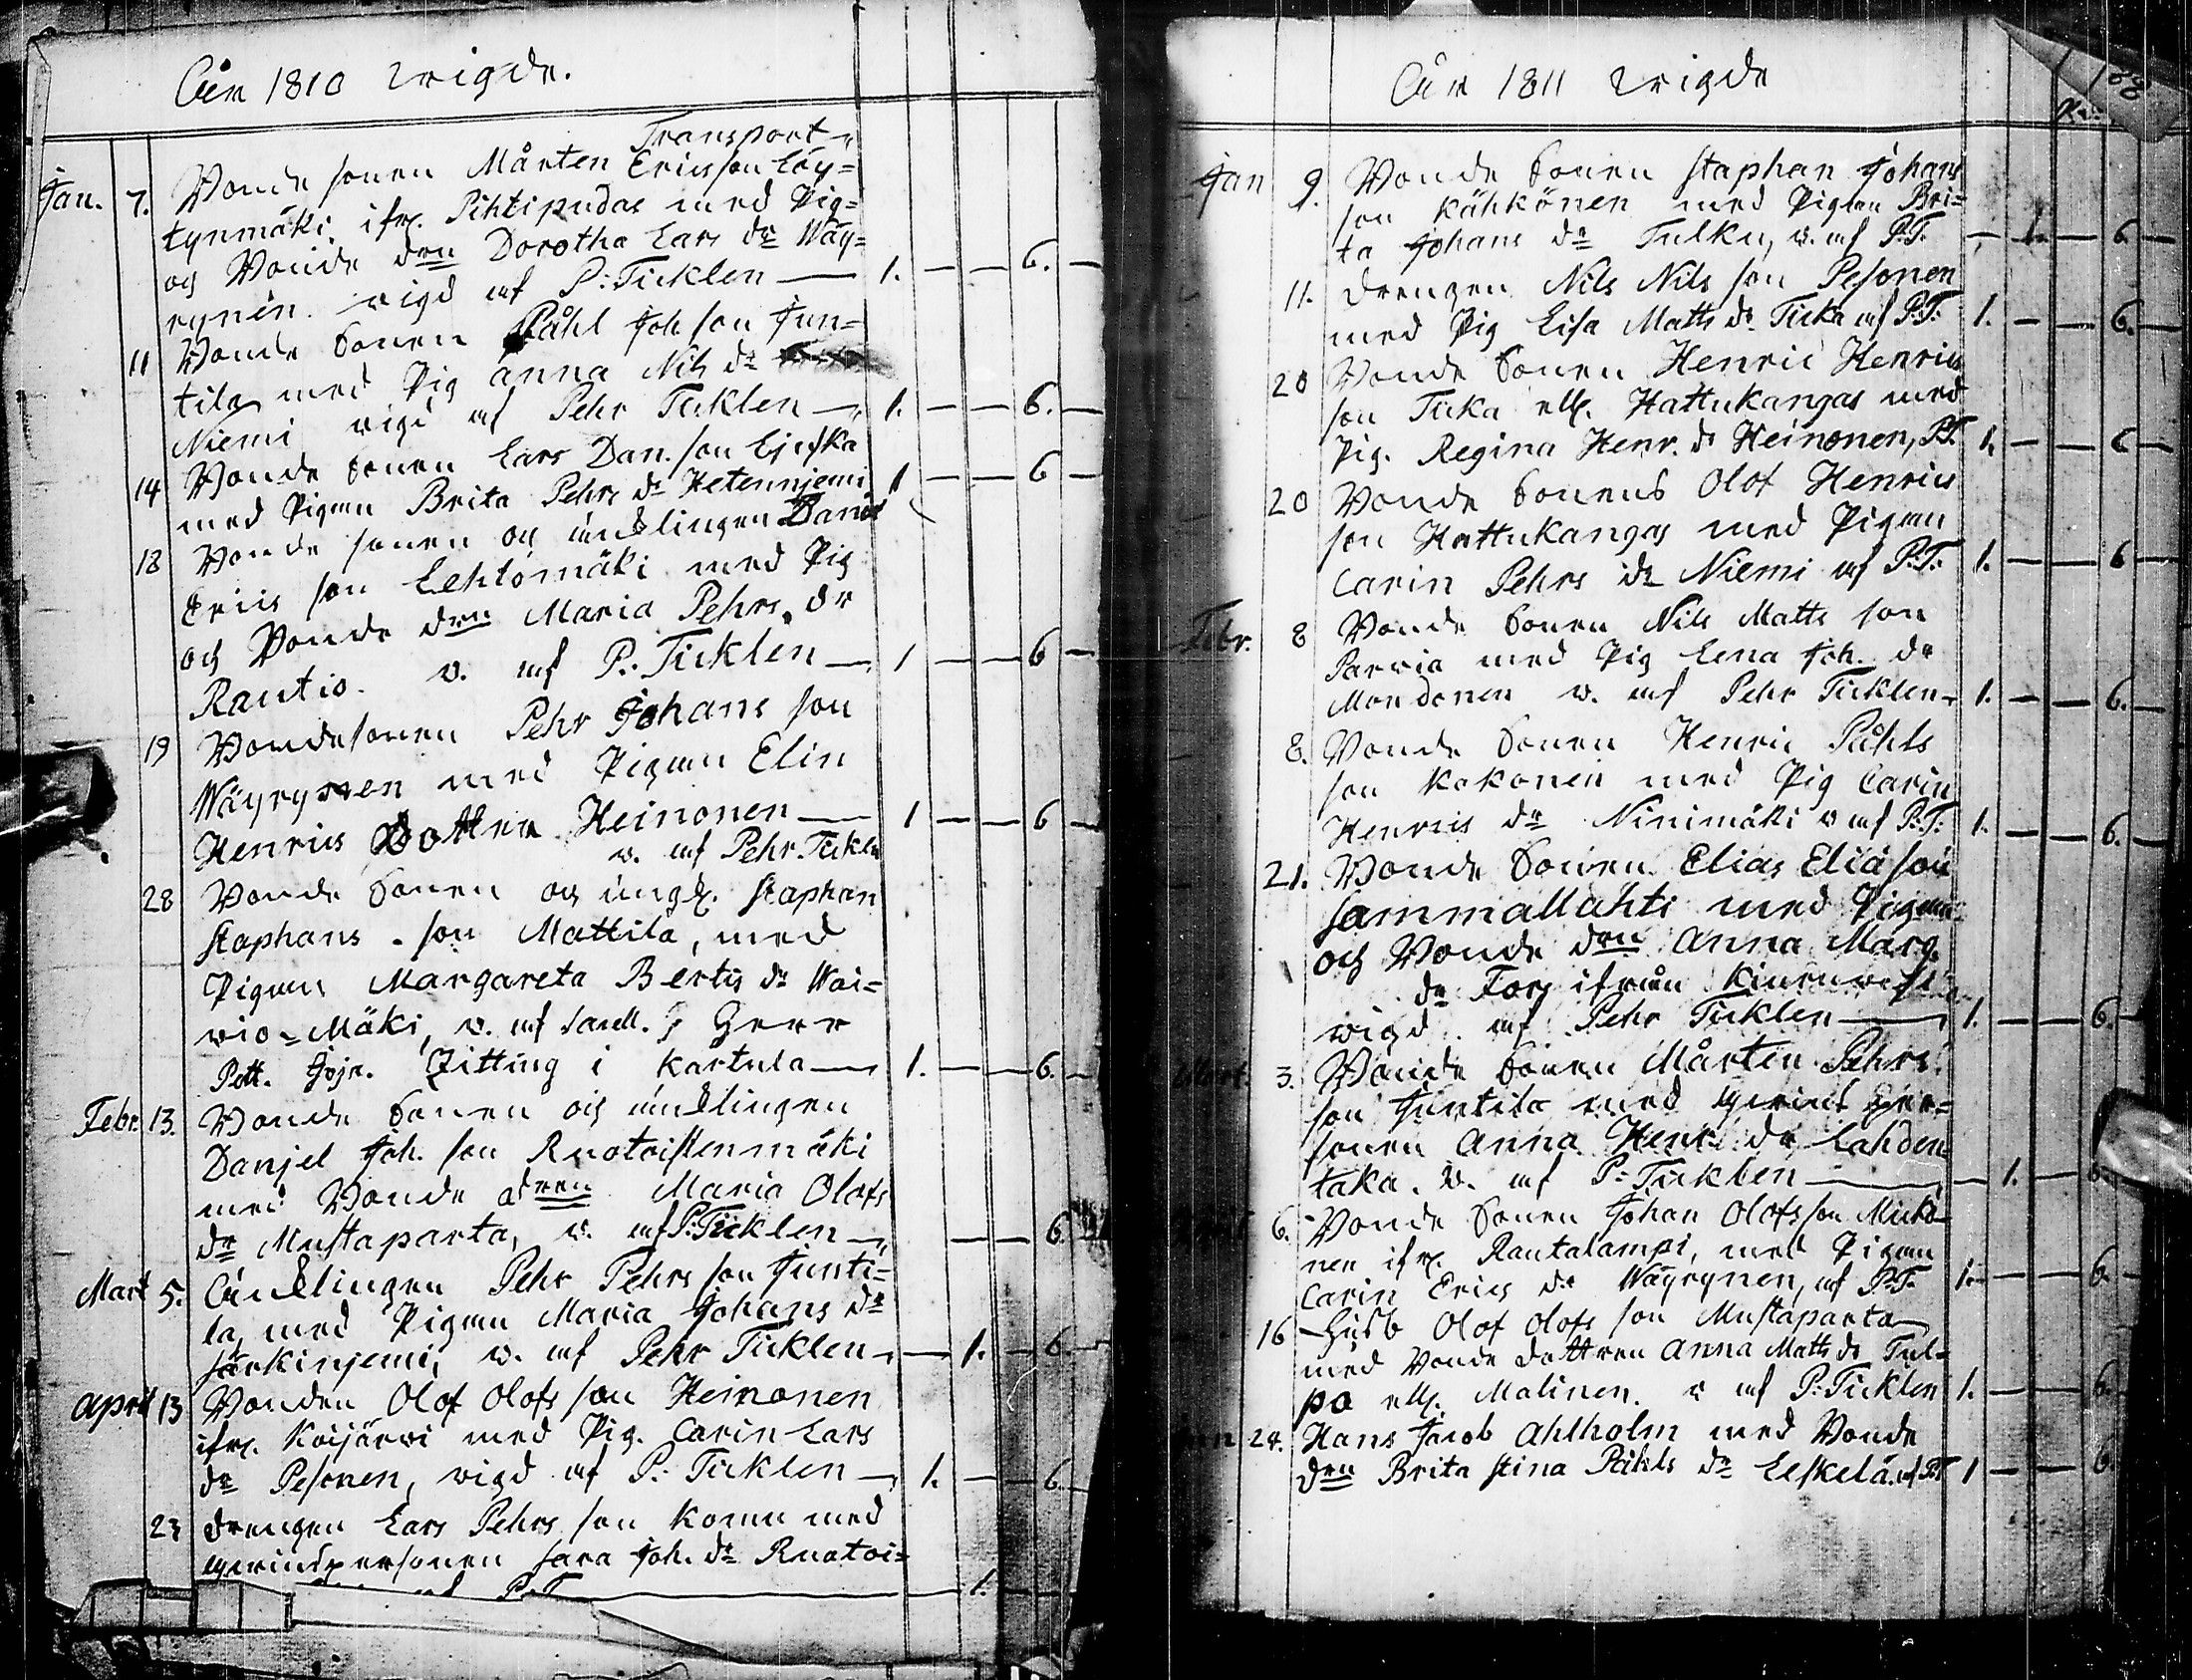 Åår 1810 wigde.
Transport
Jan. 7. Bonde sonen Mårten Ericsson Löy=
tynmäki ifr. Pihtipudas med Pig=
och Bonde dren Dorotha Lars dr Wäy=
rynen. wigd af P: Ticklen — 1. — — 6. —
11 Bonde Sonen Påhl Joh son Jun=
tila med Pig Anna Nils dr
Niemi wigd af Pehr Ticklen — 1. — — 6. —
14 Bonde Sonen Lars Dan. son
med Pigan Brita Pehrs dr Hetteinjemi 1 — — 6 —
18 Bonde sonen och ünglingen Daniel
Erics son Lehtomäki med Pig
och Bonde dren Maria Pehrs dr
Rautio. w. af P: Ticklen — 1 — — 6 —
19 Bondesonen Pehr Johans son
Wäyrynen med Pigan Elin
Henrics Dotter Heinonen — 1 — — 6 —
w. af Pehr Ticklen
28 Bonde Sonen och üngl. Staphan
Staphans son Mattila, med
Pigan Margareta Bertis dr Wai=
wio=Mäki, w. af Herr
Zitting i Kartula — 1. — — 6. —
Febr. 13. Bonde Sonen och ünglingen
Danjel Joh. son Ruotoistenmäki
med Bonde dren Maria Olofs
dr Mustaparta, w. af P: Ticklen — — — 6.
Mart 5. Ünglingen Pehr Pehrs son Junti=
la, med Pigan Maria Johans dr
Särkinjemi, w. af Pehr Ticklen — 1. — 6.
April 13 Bonden Olof Olofs son Heinonen
ifr. Koijärwi med Pig. Carin Lars
dr Pesonen, wigd af P: Ticklen — 1. — — 6.
23 Drengen Lars Pehrs son Komu med
qwinspersonen Sara Joh. dr Ruotoi=
af P.T. — 1. —
Åår 1811 wigde
188
Jan 9. Bonde Sonen Staphan Johans
son Kähkönen med Pigan Bri=
ta Johans dr Tulku, w. af P.T. — 1. — 6.
11. Drengen Nils Nils son Pesonen
med Pig Lisa Matts dr Ticka af P.T. 1. — — 6.
20 Bonde Sonen Henric Henrics
son Ticka ell. Hattukangas med
Pig. Regina Henr. dr Heinonen, P.T. 1. — — 6
20 Bonde Sonens Olof Henrics
son Hattukangas med Pigan
Carin Pehrs dr Niemi af P.T. 1. — — 6
Febr. 8 Bonde Sonen Nils Matts son
Parwia med Pig Lena Joh. dr
Mondonen w. af Pehr Ticklen 1. — — 6.
8. Bonde Sonen Henric Påhls
son Kokonen med Pig Carin
Henrics dr Ninimäki w af P.T. 1. — — 6.
21. Bonde Sonen Elias Elia son
Sammallahti med Pigan
och Bonde dren Anna Marg.
dr Fors ifrån
wigd af Pehr Ticklen — 1. — — 6.
Mart. 3. Bonde Sonen Mårten Pehrs
son Juntila med qwins per=
sonen Anna Henr. dr Lahden=
taka. w. af P: Ticklen — 1. — 6.
6. Bonde Sonen Johan Olofs son Micko
nen ifr. Rautalampi, med Pigan
Carin Erics dr Wäyrynen, af P.T. 1. — — 6.
16 Husb Olof Olofs son Mustaparta
med Bonde dottren Anna Matts dr Tul=
po ell. Malinen. w af P: Ticklen 1. — — 6.
24. Hans Jacob Ahlholm med Bonde
dren Brita Stina Påhls dr Leskelä. af P.T 1 — — 6.